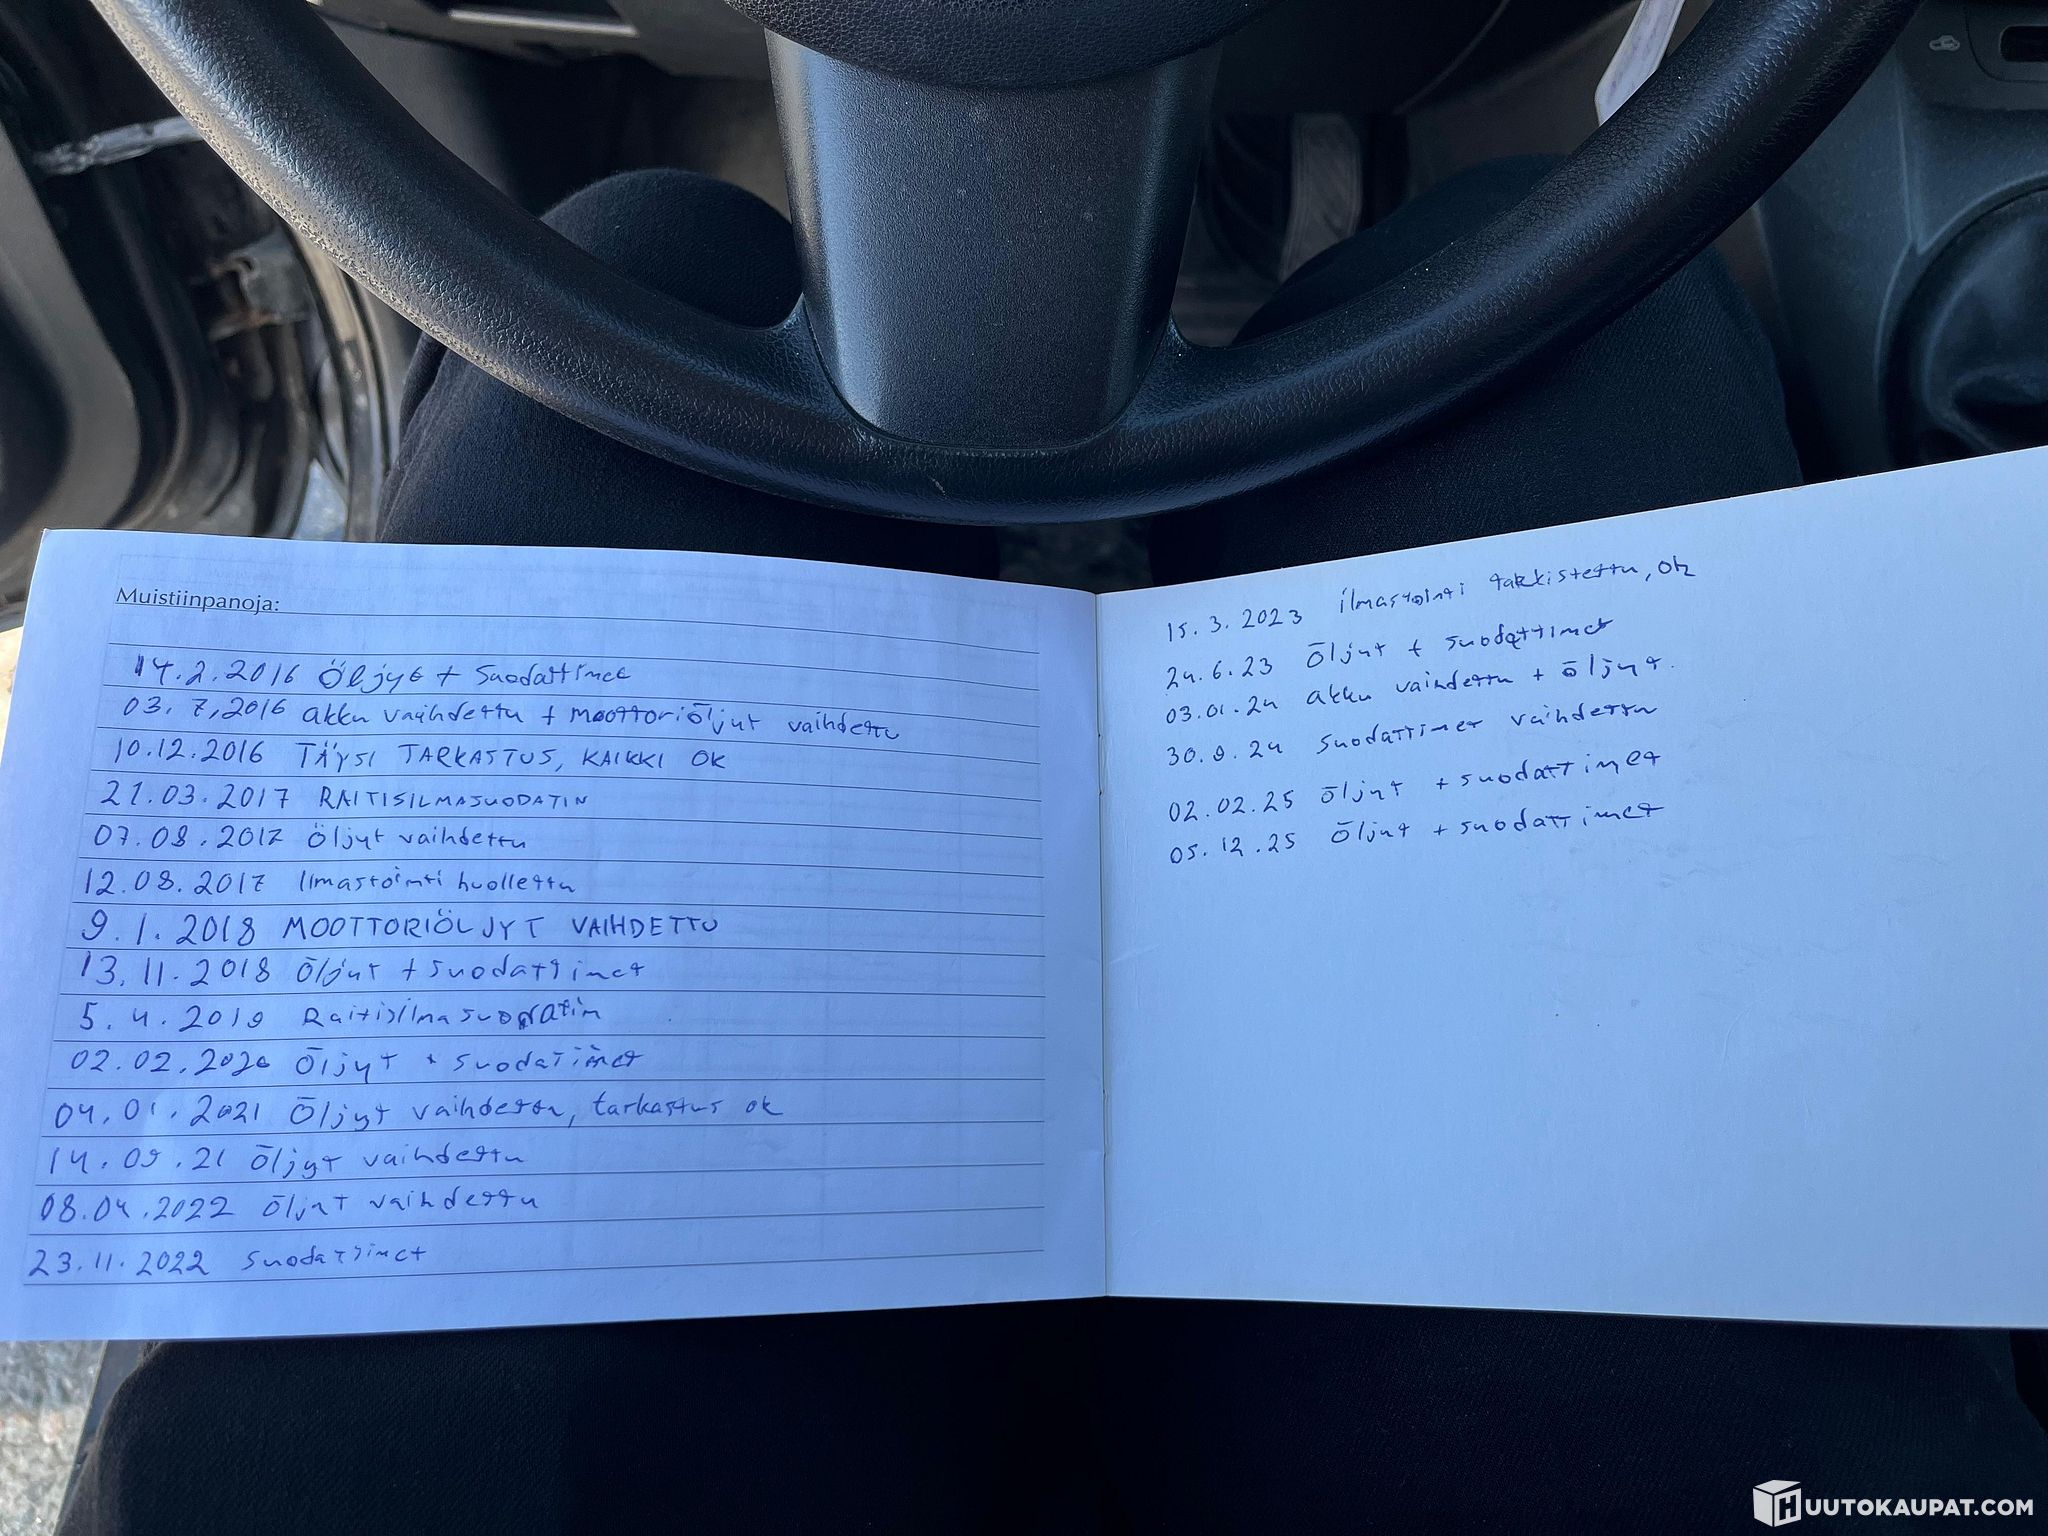 Muistiinpanoja:
14.2.2016 Öljyt + Suodattimet
03.7.2016 akku vaihdettu + moottoriöljyt vaihdettu
10.12.2016 TÄYSI TARKASTUS, KAIKKI OK
21.03.2017 RAITISILMASUODATIN
07.08.2017 Öljyt vaihdettu
12.08.2017 Ilmastointi huollettu
9.1.2018 MOOTTORIÖLJYT VAIHDETTU
13.11.2018 Öljyt + suodattimet
5.4.2019 Raitisilmasuodatin
02.02.2020 Öljyt + suodatimet
04.01.2021 Öljyt vaihdettu, tarkastus ok
14.09.21 Öljyt vaihdettu
08.04.2022 öljyt vaihdettu
23.11.2022 suodattimet
15.3.2023 ilmastointi tarkistettu, ok
24.6.23 Öljyt + suodattimet
03.01.24 akku vaihdettu + öljyt.
30.9.24 suodattimet vaihdettu
02.02.25 öljyt + suodattimet
05.12.25 öljyt + suodattimet
HUUTOKAUPAT.COM